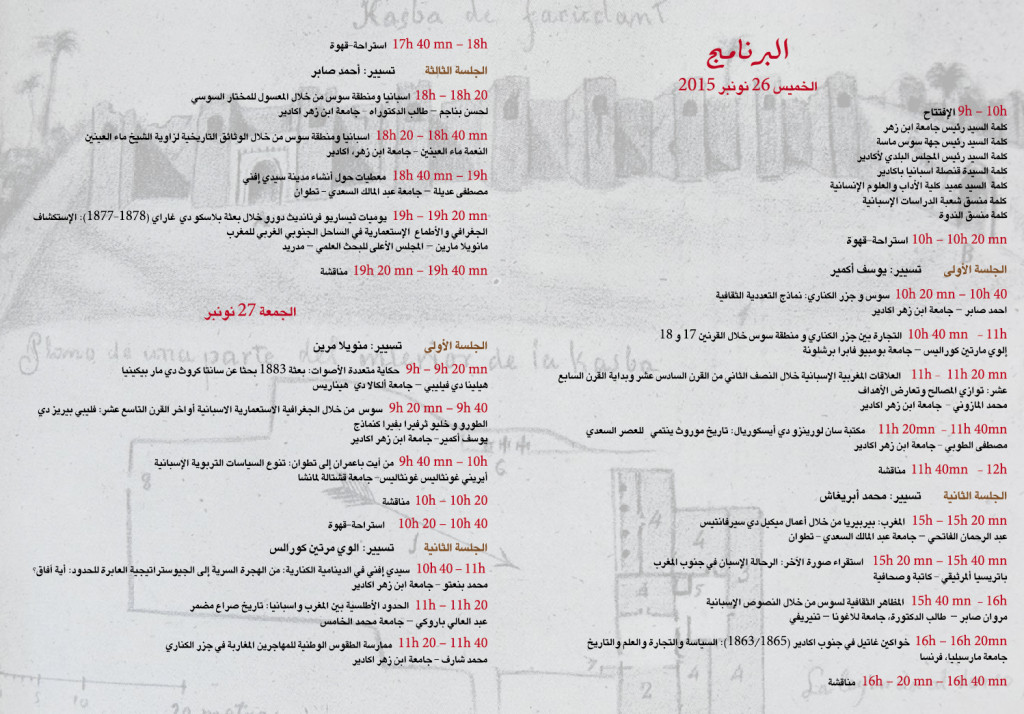 Kasba de Taroudant
البرنامج
الخميس 26 نونبر 2015
9h – 10h الإفتتاح
كلمة السيد رئيس جامعة ابن زهر
كلمة السيد رئيس جهة سوس ماسة
كلمة السيد رئيس المجلس البلدي لأكادير
كلمة السيدة قنصلة اسبانيا باكادير
كلمة السيد عميد كلية الآداب والعلوم الإنسانية
كلمة منسق شعبة الدراسات الإسبانية
كلمة منسق الندوة
10h – 10h 20 mn استراحة-قهوة
الجلسة الأولى تسيير: يوسف أكمير
10h 20 mn – 10h 40 سوس و جزر الكناري: نماذج التعددية الثقافية
احمد صابر – جامعة ابن زهر اكادير
10h 40 mn - 11h التجارة بين جزر الكناري و منطقة سوس خلال القرنين 17 و 18
إلوي مارتين كوراليس – جامعة بومبيو فابرا برشلونة
11h - 11h 20 mn العلاقات المغربية الإسبانية خلال النصف الثاني من القرن السادس عشر وبداية القرن السابع
عشر: توازي المصالح وتعارض الأهداف
محمد المازوني - جامعة ابن زهر اكادير
11h 20mn - 11h 40mn مكتبة سان لورينزو دي أيسكوريال: تاريخ موروث ينتمي للعصر السعدي
مصطفى الطوبي – جامعة ابن زهر اكادير
11h 40mn - 12h مناقشة
الجلسة الثانية تسيير: محمد أبريغاش
15h – 15h 20 mn المغرب: بيربيريا من خلال أعمال ميكيل دي سيرفانتيس
عبد الرحمان الفاتحي – جامعة عبد المالك السعدي - تطوان
15h 20 mn – 15h 40 mn استقراء صورة الآخر: الرحالة الإسبان في جنوب المغرب
باتريسيا ألمرثيقي - كاتبة وصحافية
15h 40 mn - 16h المظاهر الثقافية لسوس من خلال النصوص الإسبانية
مروان صابر – طالب الدكتورة، جامعة للاغونا – تنيريفي
16h – 16h 20mn خواكين غاتيل في جنوب اكادير (1863/1865): السياسة والتجارة والعلم والتاريخ
جامعة مارسيليا، فرنسا
16h – 20 mn – 16h 40 mn مناقشة
17h 40 mn – 18h استراحة-قهوة
الجلسة الثالثة تسيير: أحمد صابر
18h – 18h 20 اسبانيا ومنطقة سوس من خلال المعسول للمختار السوسي
لحسن بناجم – طالب الدكتوراه - جامعة ابن زهر اكادير
18h 20 – 18h 40 mn اسبانيا ومنطقة سوس من خلال الوثائق التاريخية لزاوية الشيخ ماء العينين
النعمة ماء العينين - جامعة ابن زهر، اكادير
18h 40 mn – 19h معطيات حول أنشاء مدينة سيدي إفني
مصطفى عديلة – جامعة عبد المالك السعدي - تطوان
19h – 19h 20 mn يوميات ثيساريو فرنانديث دورو خلال بعثة بلاسكو دي غاراي (1878-1877): الإستكشاف
الجغرافي والأطماع الإستعمارية في الساحل الجنوبي الغربي للمغرب
مانويلا مارين – المجلس الأعلى للبحث العلمي – مدريد
19h 20 mn – 19h 40 mn مناقشة
الجمعة 27 نونبر
الجلسة الأولى تسيير: منويلا مرين
9h – 9h 20 mn حكاية متعددة الأصوات: بعثة 1883 بحثا عن سانتا كروث دي مار بيكينيا
هيلينا دي فيليبي – جامعة ألكالا دي هيناريس
9h 20 mn – 9h 40 سوس من خلال الجغرافية الاستعمارية الاسبانية أواخر القرن التاسع عشر: فليبي بيريز دي
الطورو و خليو ثرفيرا بفيرا كنماذج
يوسف أكمير- جامعة ابن زهر اكادير
9h 40 mn – 10h من أيت باعمران إلى تطوان: تنوع السياسات التربوية الإسبانية
أيريني غونثاليس غونثاليس- جامعة قشتالة لمانشا
10h – 10h 20 مناقشة
10h 20 – 10h 40 استراحة-قهوة
الجلسة الثانية تسيير: الوي مرتين كورالس
10h 40 – 11h سيدي إفني في الدينامية الكنارية: من الهجرة السرية إلى الجيوستراتيجية العابرة للحدود: أية أفاق؟
محمد بنعتو - جامعة ابن زهر اكادير
11h – 11h 20 الحدود الأطلسية بين المغرب واسبانيا: تاريخ صراع مضمر
عبد العالي باروكي – جامعة محمد الخامس
11h 20 – 11h 40 ممارسة الطقوس الوطنية للمهاجرين المغاربة في جزر الكناري
محمد شارف - جامعة ابن زهر اكادير
Plano de una parte del interior de la Kasba